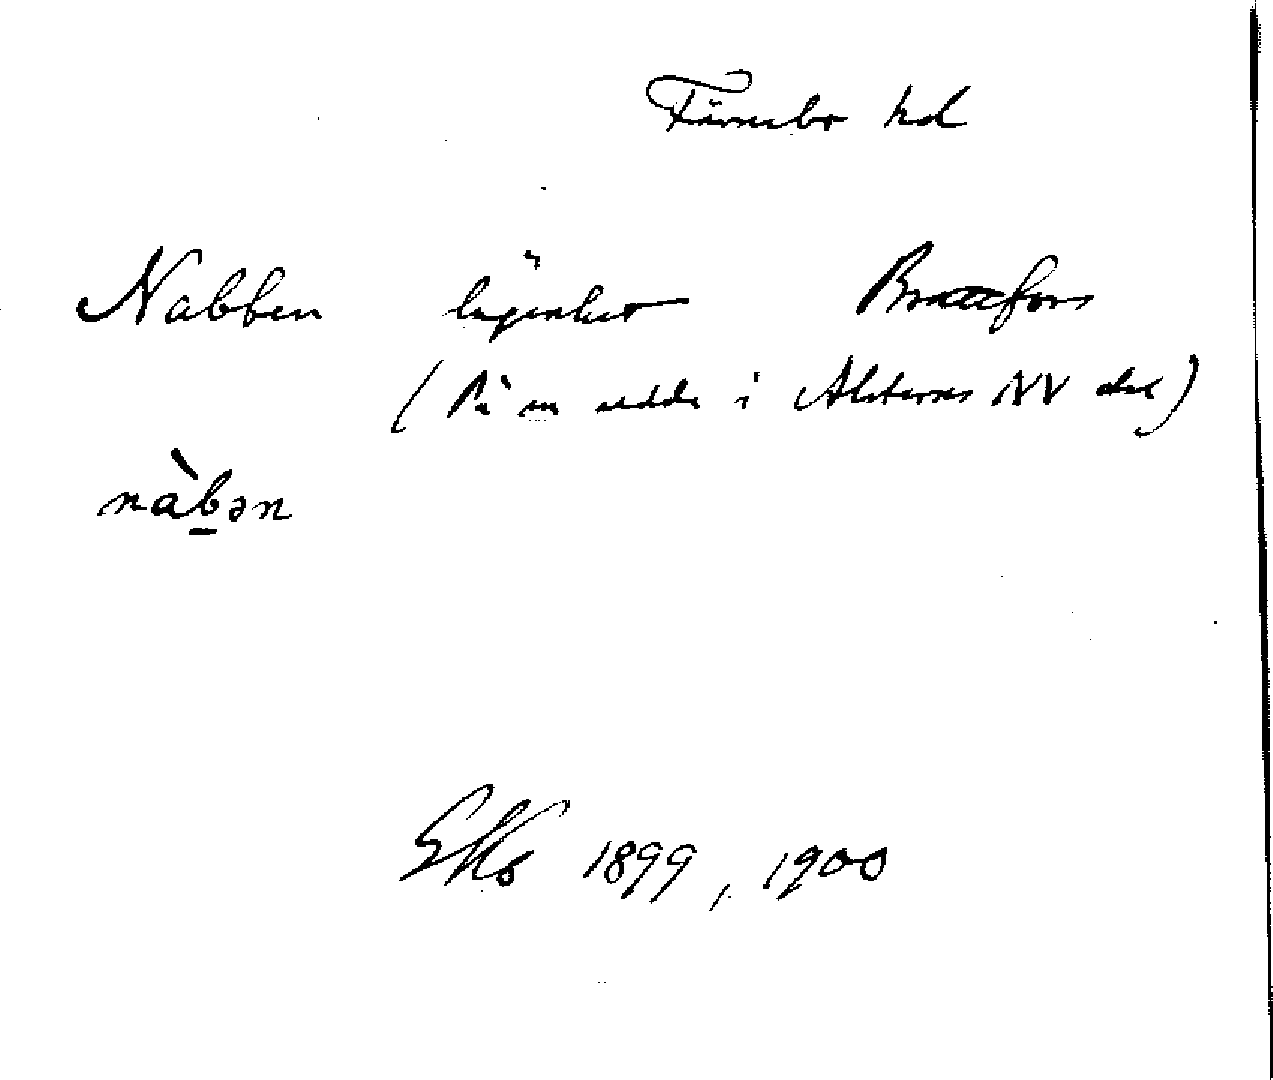 Färnebo hd
Nabben lägenhet Brattefors
(På en udde i Alsterns NV del)
nàb̲ən
1899, 1900